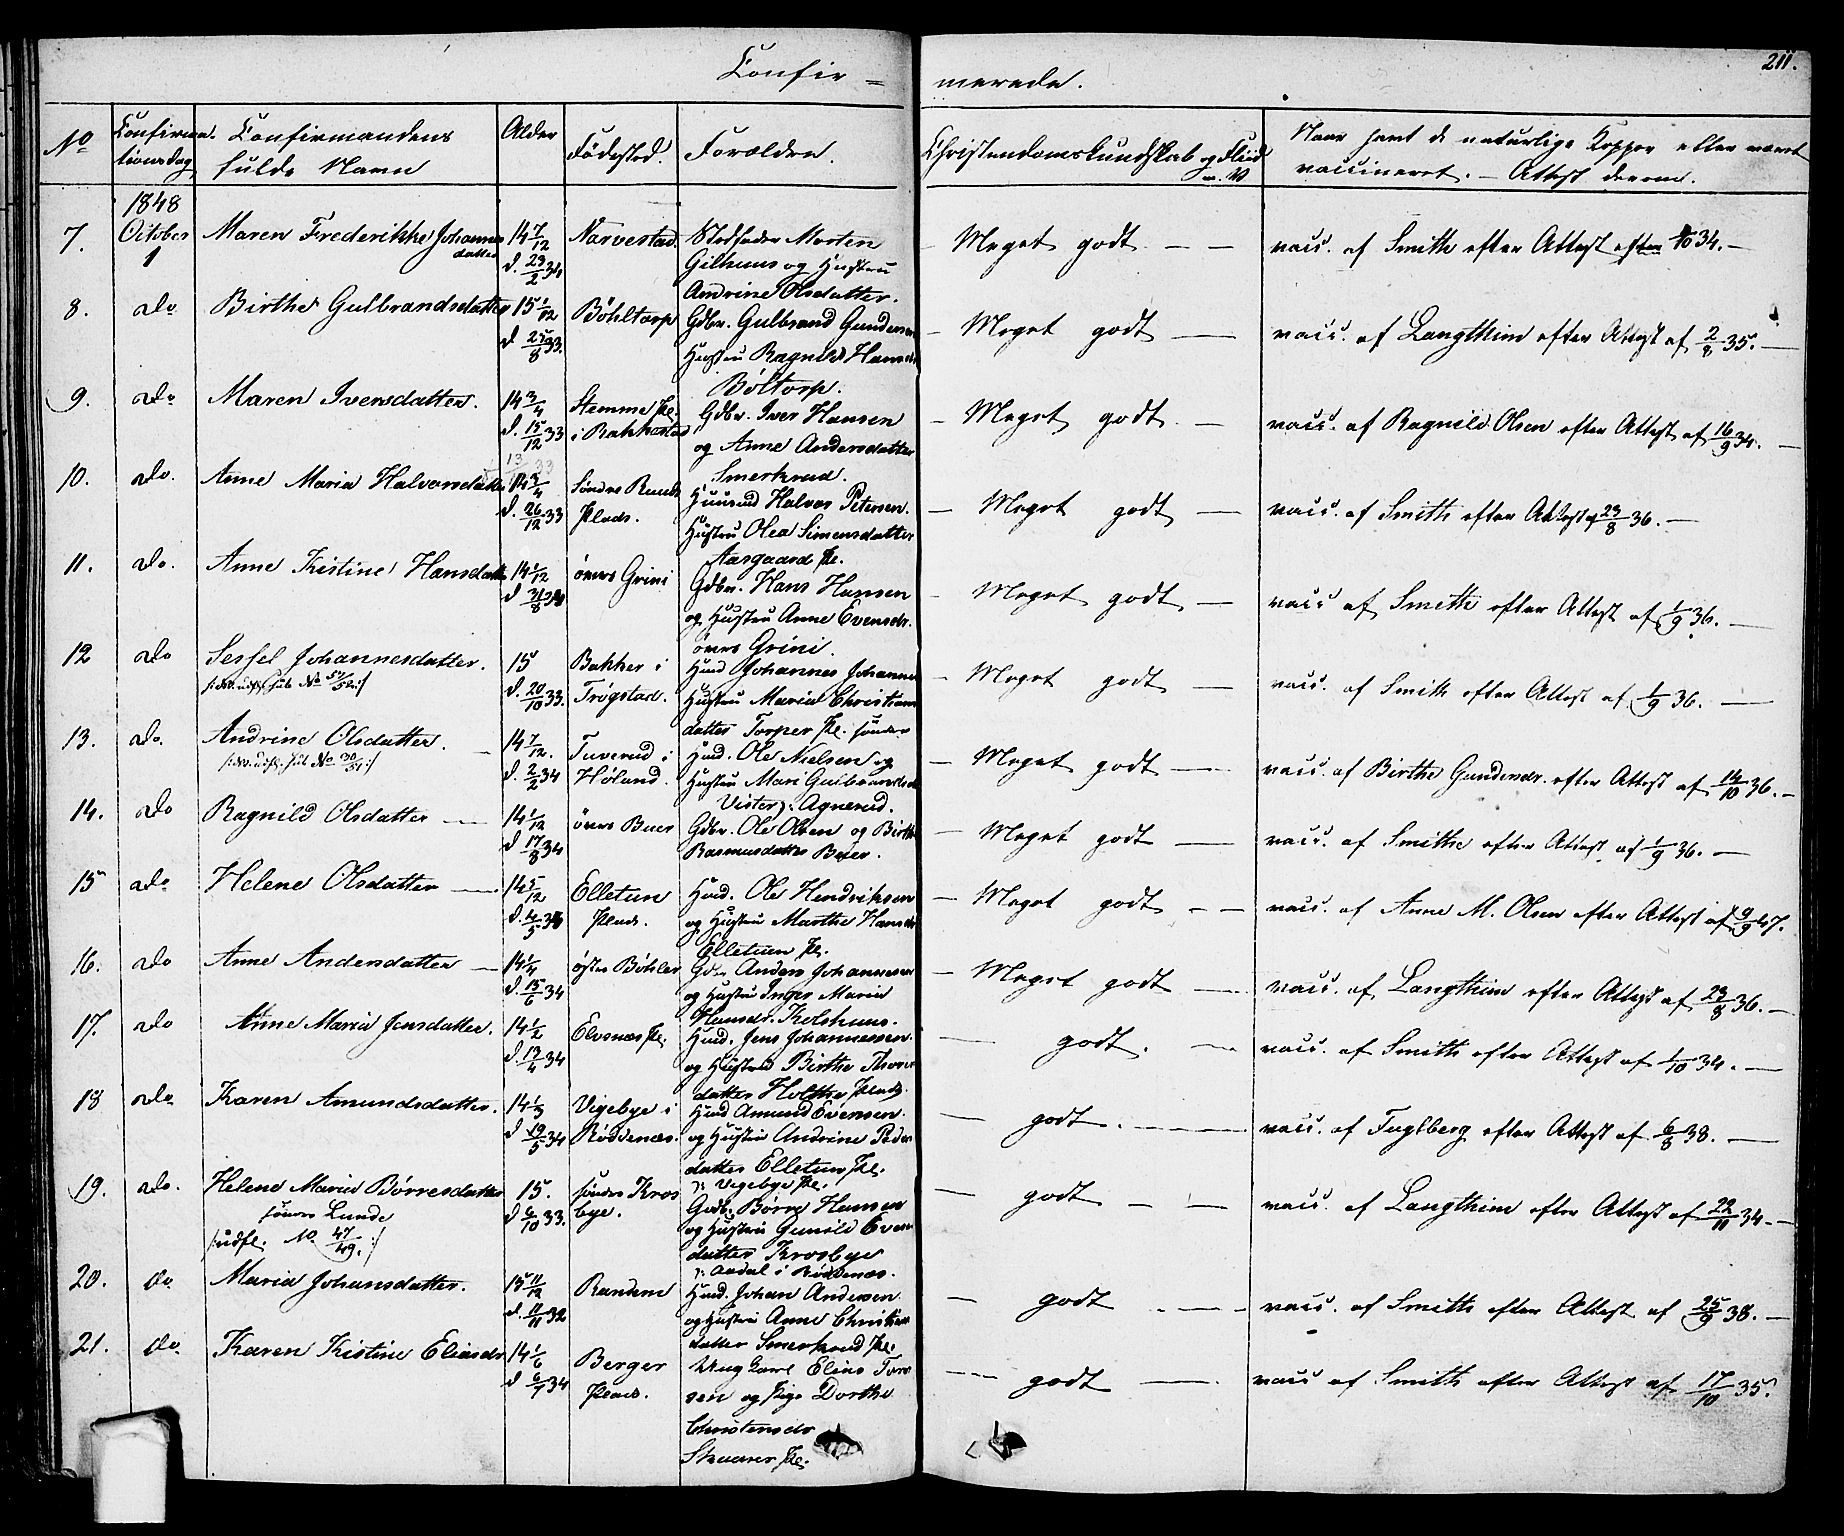 Confir =
merede.
211.
No
Confirma-
tionsdag
Confirmandens
fulde Navn
Alder
Fødested.
Forældre.
Christendomskundskab og Fliid
Naar havt de naturlige Kopper eller været
vaccineret. - Attest derom.
1848
7.
October
1
Maren Frederikke Johannes
datter
14 7/12
d. 23/2 34
Narvestad.
Stedfader Morten
Gilhuus og Hustru
Andrine Olsdatter.
Meget godt
vacc. af Smith efter Attest 34.
8.
do
Birthe Gulbrandsdatter
15 1/12
d 25/8 33.
Böhltorp
Gdbr. Gulbrand Gundersen
Hustru Ragnild Hansdr
Böltorp.
Meget godt
vacc. af Langthim efter Attest af 2/8 35.
9.
do
Maren Iversdatter.
14 3/4
d. 15/12 33
Stemme Pl.
i Rakkestad
Gdbr. Iver Hansen
og Anne Andersdatter
Smerkrud.
Meget godt
vacc. af Ragnild Olsen efter Attest af 16/9 34.
10.
do.
Anne Maria Halvorsdatter
14 3/4
d. 26/12 33
Søndre Rund
Plads.
Huusmd Halvor Petersen.
Hustru Olea Simensdatter
Aasgaard Pl.
Meget godt
vacc. af Smith efter Attest af 23/8 36.
11.
do.
Anne Kistine Hansdatter
14 1/12
d 31/8 34
øvre Grini
Gdbr. Hans Hansen
og Hustru Anne Evensdr.
øvre Grini.
Meget godt
vacc af Smith efter Attest af 1/9 36.
12
do
Sessel Johannesdatter.
15
d. 20/10 33.
Bakker i
Trøgstad.
Hmd Johannes Johannes
Hustru Maria Christians
datter Torper Pl. søndre
Meget godt
vacc. af Smith efter Attest af 1/9 36.
13.
do.
Andrine Olsdatter.
14 7/12.
d. 2/2 34
Tuverud i
Høland.
Hmd. Ole Nielsen og
Hustru Mari Gulbrandsdr
Vister): Agnerud.
Meget godt
vacc. af Birthe Gundersdr. efter Attest af 14/10 36.
14.
do
Ragnild Olsdatter
14 1/12
d 17/8 34
øvre Buer
Gdbr. Ole Olsen og Birthe
Rasmusdatter Buer.
Meget godt
vacc. af Smith efter Attest af 1/9 36.
15
do
Helene Olsdatter
14 5/12
d. 4/5 34
Elletun
Plads.
Hmd. Ole Hendriksen
og Hustru Marthe Hansdr
Elletuen Pl.
Meget godt
vacc. af Anne M. Olsen efter Attest af 9/9 47.
16.
do
Anne Andersdatter
14 1/4
d. 15/6 34
østre Böhler
Gdbr Anders Johannesen
og Hustru Inger Maria
Hansdr. Kolshuus.
Meget godt
vacc. af Langthim efter Attest af 23/8 36.
17.
do
Anne Maria Jensdatter.
14 1/2
d. 13/4 34
Elvenæs Pl.
Hmd. Jens Johannessen.
og Hustru Birthe Thores
datter Holther Plads.
godt.
vacc. af Smith efter Attest af 1/10 34.
18
do
Karen Amundsdatter.
14 1/3
d 19/5 34
Vigebye i
Röddenæs.
Hmd Amund Evensen.
og Hustru Andrine Peders
datter Elletun Pl.
): Vegebye Pl.
godt.
vacc. af Fuglberg efter Attest af 6/8 38.
19.
do.
Helene Maria Børresdatter
søndre Lunde
/: udfl. No 47/49. :/
15.
d 6/10 33.
søndre Kros
bye.
Gdb. Børre Hansen
og Hustru Gunild Evens
datter Krosbye
godt
vacc. af Langthim efter Attest af 22/11 34.
20.
do
Maria Johansdatter.
15 11/12
d. 11/11 32
Randem
): Aadal i Röddenæs.
Hmd. Johan Andersen
og Hustru Anne Christians
datter Smerkrud Pl.
godt
vacc. af Smith efter Attest af 25/9 38.
21.
do
Karen Kistine Eliasdr
14 1/6
d 6/7 34
Berger
Plads.
Ungkarl Elias Tores
sen og Pige Dorthe
Christensdr
Skaarer Pl.
godt
vacc af Smith efter Attest af 17/10 35.